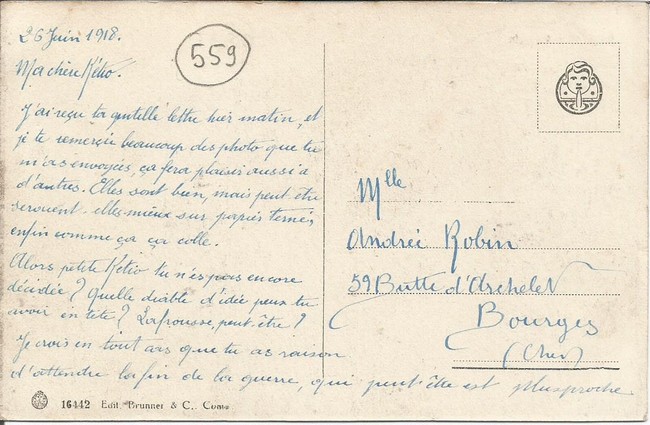 26 Juin 1918.
559
Ma chère Kétio.
J'ai reçu ta gentille lettre hier matin, et
je te remercie beaucoup des photo que tu
m'as envoyées, ça fera plaisir aussi a
d'autres. Elles sont bien, mais peut être
seraient elles mieux sur papier
enfin comme ça ça colle.
Alors petite Kétio tu n'es pas encore
décidée? Quelle diable d'idée peux tu
avoir en tête? La frousse, peut être?
Je crois en tout cas que tu as raison
d'attendre la fin de la guerre, qui peut être est plus proche.
Mlle
Andrée Robin
59 Butte d'Archelet
Bourges
(Cher)
16442 Edit. Brunner & C., Como